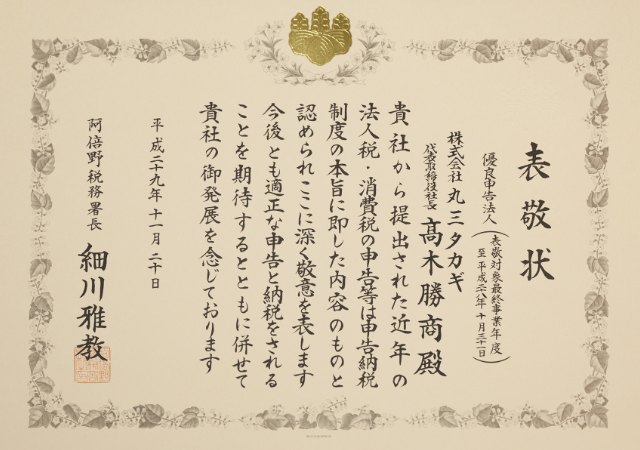 表敬状
優良申告法人
(表敬対象最終事業年度
至 平成二八年 十月三十一日)
株式会社 丸三タカギ
代表取締役社長 髙木勝商殿
貴社から提出された近年の
法人税・消費税の申告等は申告納税
制度の本旨に即した内容のものと
認められここに深く敬意を表します
今後とも適正な申告と納税をされる
ことを期待するとともに併せて
貴社の御発展を念じております
平成二十九年十一月二十日
阿倍野税務署長 細川雅教